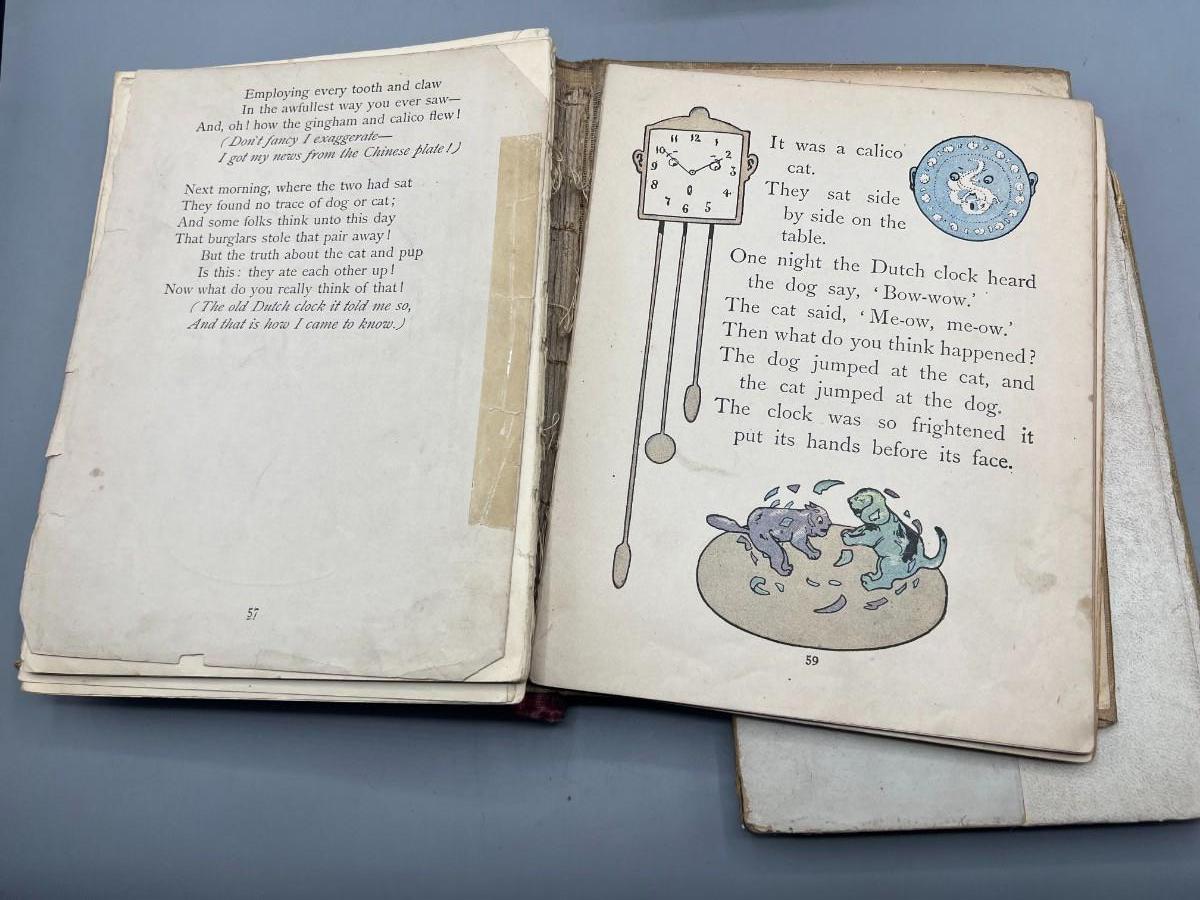 Employing every tooth and claw
In the awfullest way you ever saw—
And, oh! how the gingham and calico flew!
(Don't fancy I exaggerate—
I got my news from the Chinese plate!)
Next morning, where the two had sat
They found no trace of dog or cat;
And some folks think unto this day
That burglars stole that pair away!
But the truth about the cat and pup
Is this: they ate each other up!
Now what do you really think of that!
(The old Dutch clock it told me so,
And that is how I came to know.)
57
11 12 1
10 2
9 3
8 4
7 6 5
It was a calico
cat.
They sat side
by side on the
table.
One night the Dutch clock heard
the dog say, 'Bow-wow.'
The cat said, 'Me-ow, me-ow.'
Then what do you think happened?
The dog jumped at the cat, and
the cat jumped at the dog.
The clock was so frightened it
put its hands before its face.
59